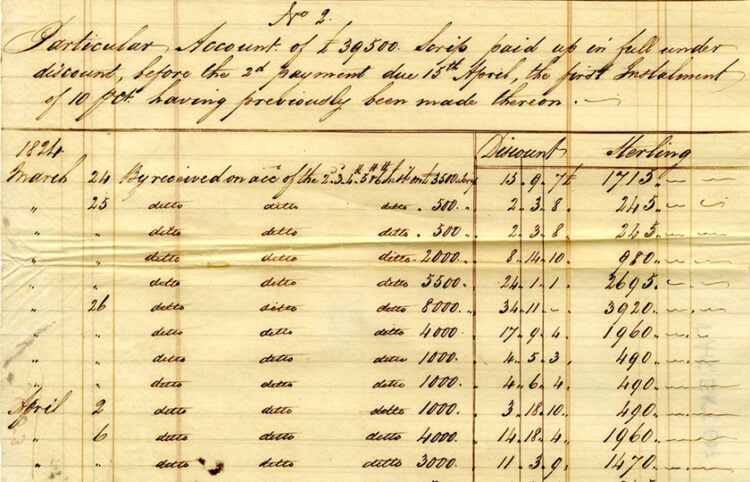 No 2.
Particular Account of £39500. Scrip paid up in full under
discount, before the 2d payment due 15th April, the first Instalment
of 10 pCt. having previously been made thereon.
1824 Discount Sterling
March 24 By received on acc of the 2d 3d 4th 5th 6th Inst. on £3500 Scrip 15. 9. 7½ 1715
" 25 ditto ditto ditto . 500. 2. 3. 8 245
" " ditto ditto ditto . 500. 2. 3. 8. 245
" " ditto ditto ditto . 2000. 8. 14. 10. 980
" " ditto ditto ditto . 5500. 24. 1. 1 2695
" 26 ditto ditto ditto . 8000. 34. 11. – 3920
" " ditto ditto ditto 4000. 17. 9. 4 1960
" " ditto ditto ditto . 1000. 4. 5. 3 490
" " ditto ditto ditto . 1000. 4. 6. 4 490
April 2 ditto ditto ditto . 1000. 3. 18. 10. 490
" 6 ditto ditto ditto . 4000. 14. 18. 4 1960
" " ditto ditto ditto 3000. 11. 3. 9. 1470